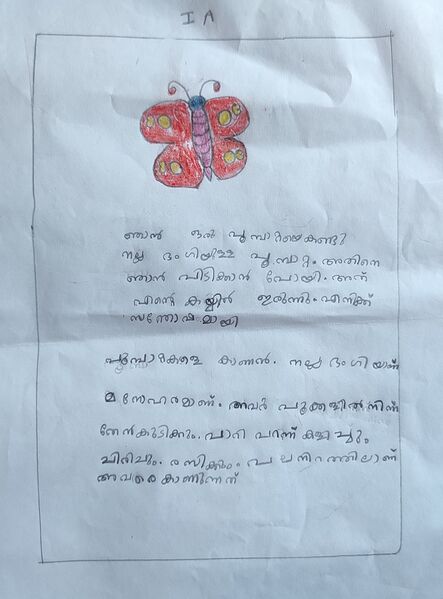 I A
ഞാൻ ഒരു പൂമ്പാറ്റയെകണ്ടു
നല്ല ഭംഗിയുള്ള പൂമ്പാറ്റ. അതിനെ
ഞാൻ പിടിക്കാൻ പോയി. അത്
എന്റെ കയ്യിൽ ഇരുന്നു. എനിക്ക്
സന്തോഷമായി
പൂമ്പാറ്റകളെ കാണാൻ. നല്ല ഭംഗിയാണ്
മനോഹരമാണ്. അവർ പൂക്കളിൽനിന്ന്
തേൻകുടിക്കും. പാറി പറന്ന് കളിച്ചും
ചിരിച്ചും. രസിക്കും. പലനിറത്തിലാണ്
അവരെകാണുന്നത്